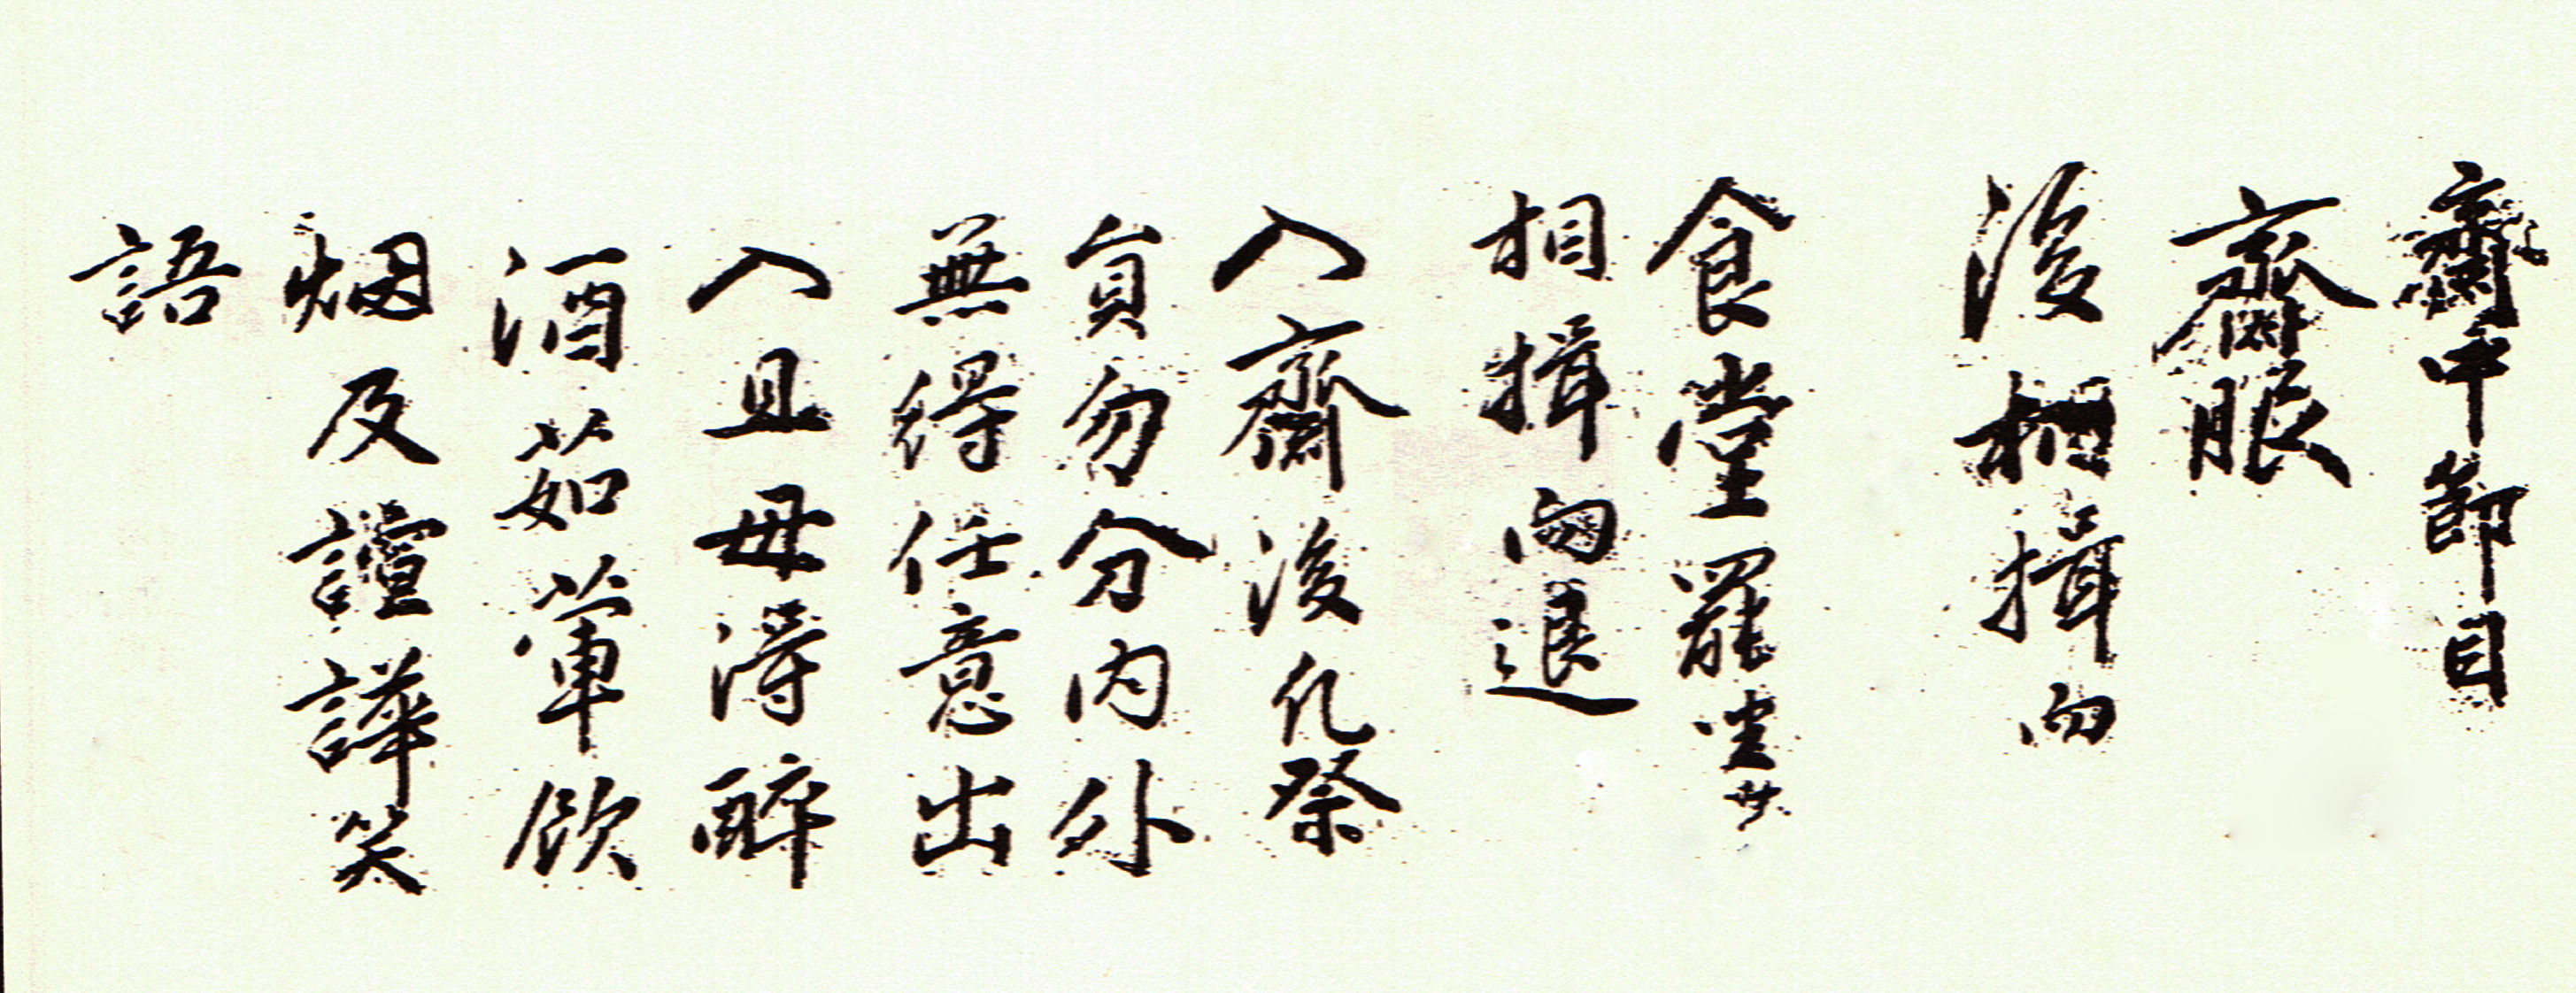 齋中節目
齋服
後相揖向
食堂罷坐
相揖向退
入齋後凡祭
員勿分內外
無得任意出
入且毋得醉
酒茹葷飲
烟及諠譁笑
語